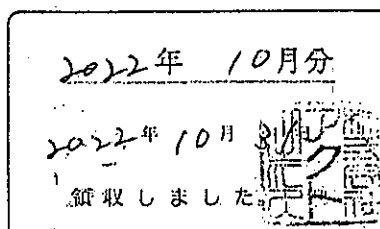 2022年 10月分
2022年 10月
領収しました